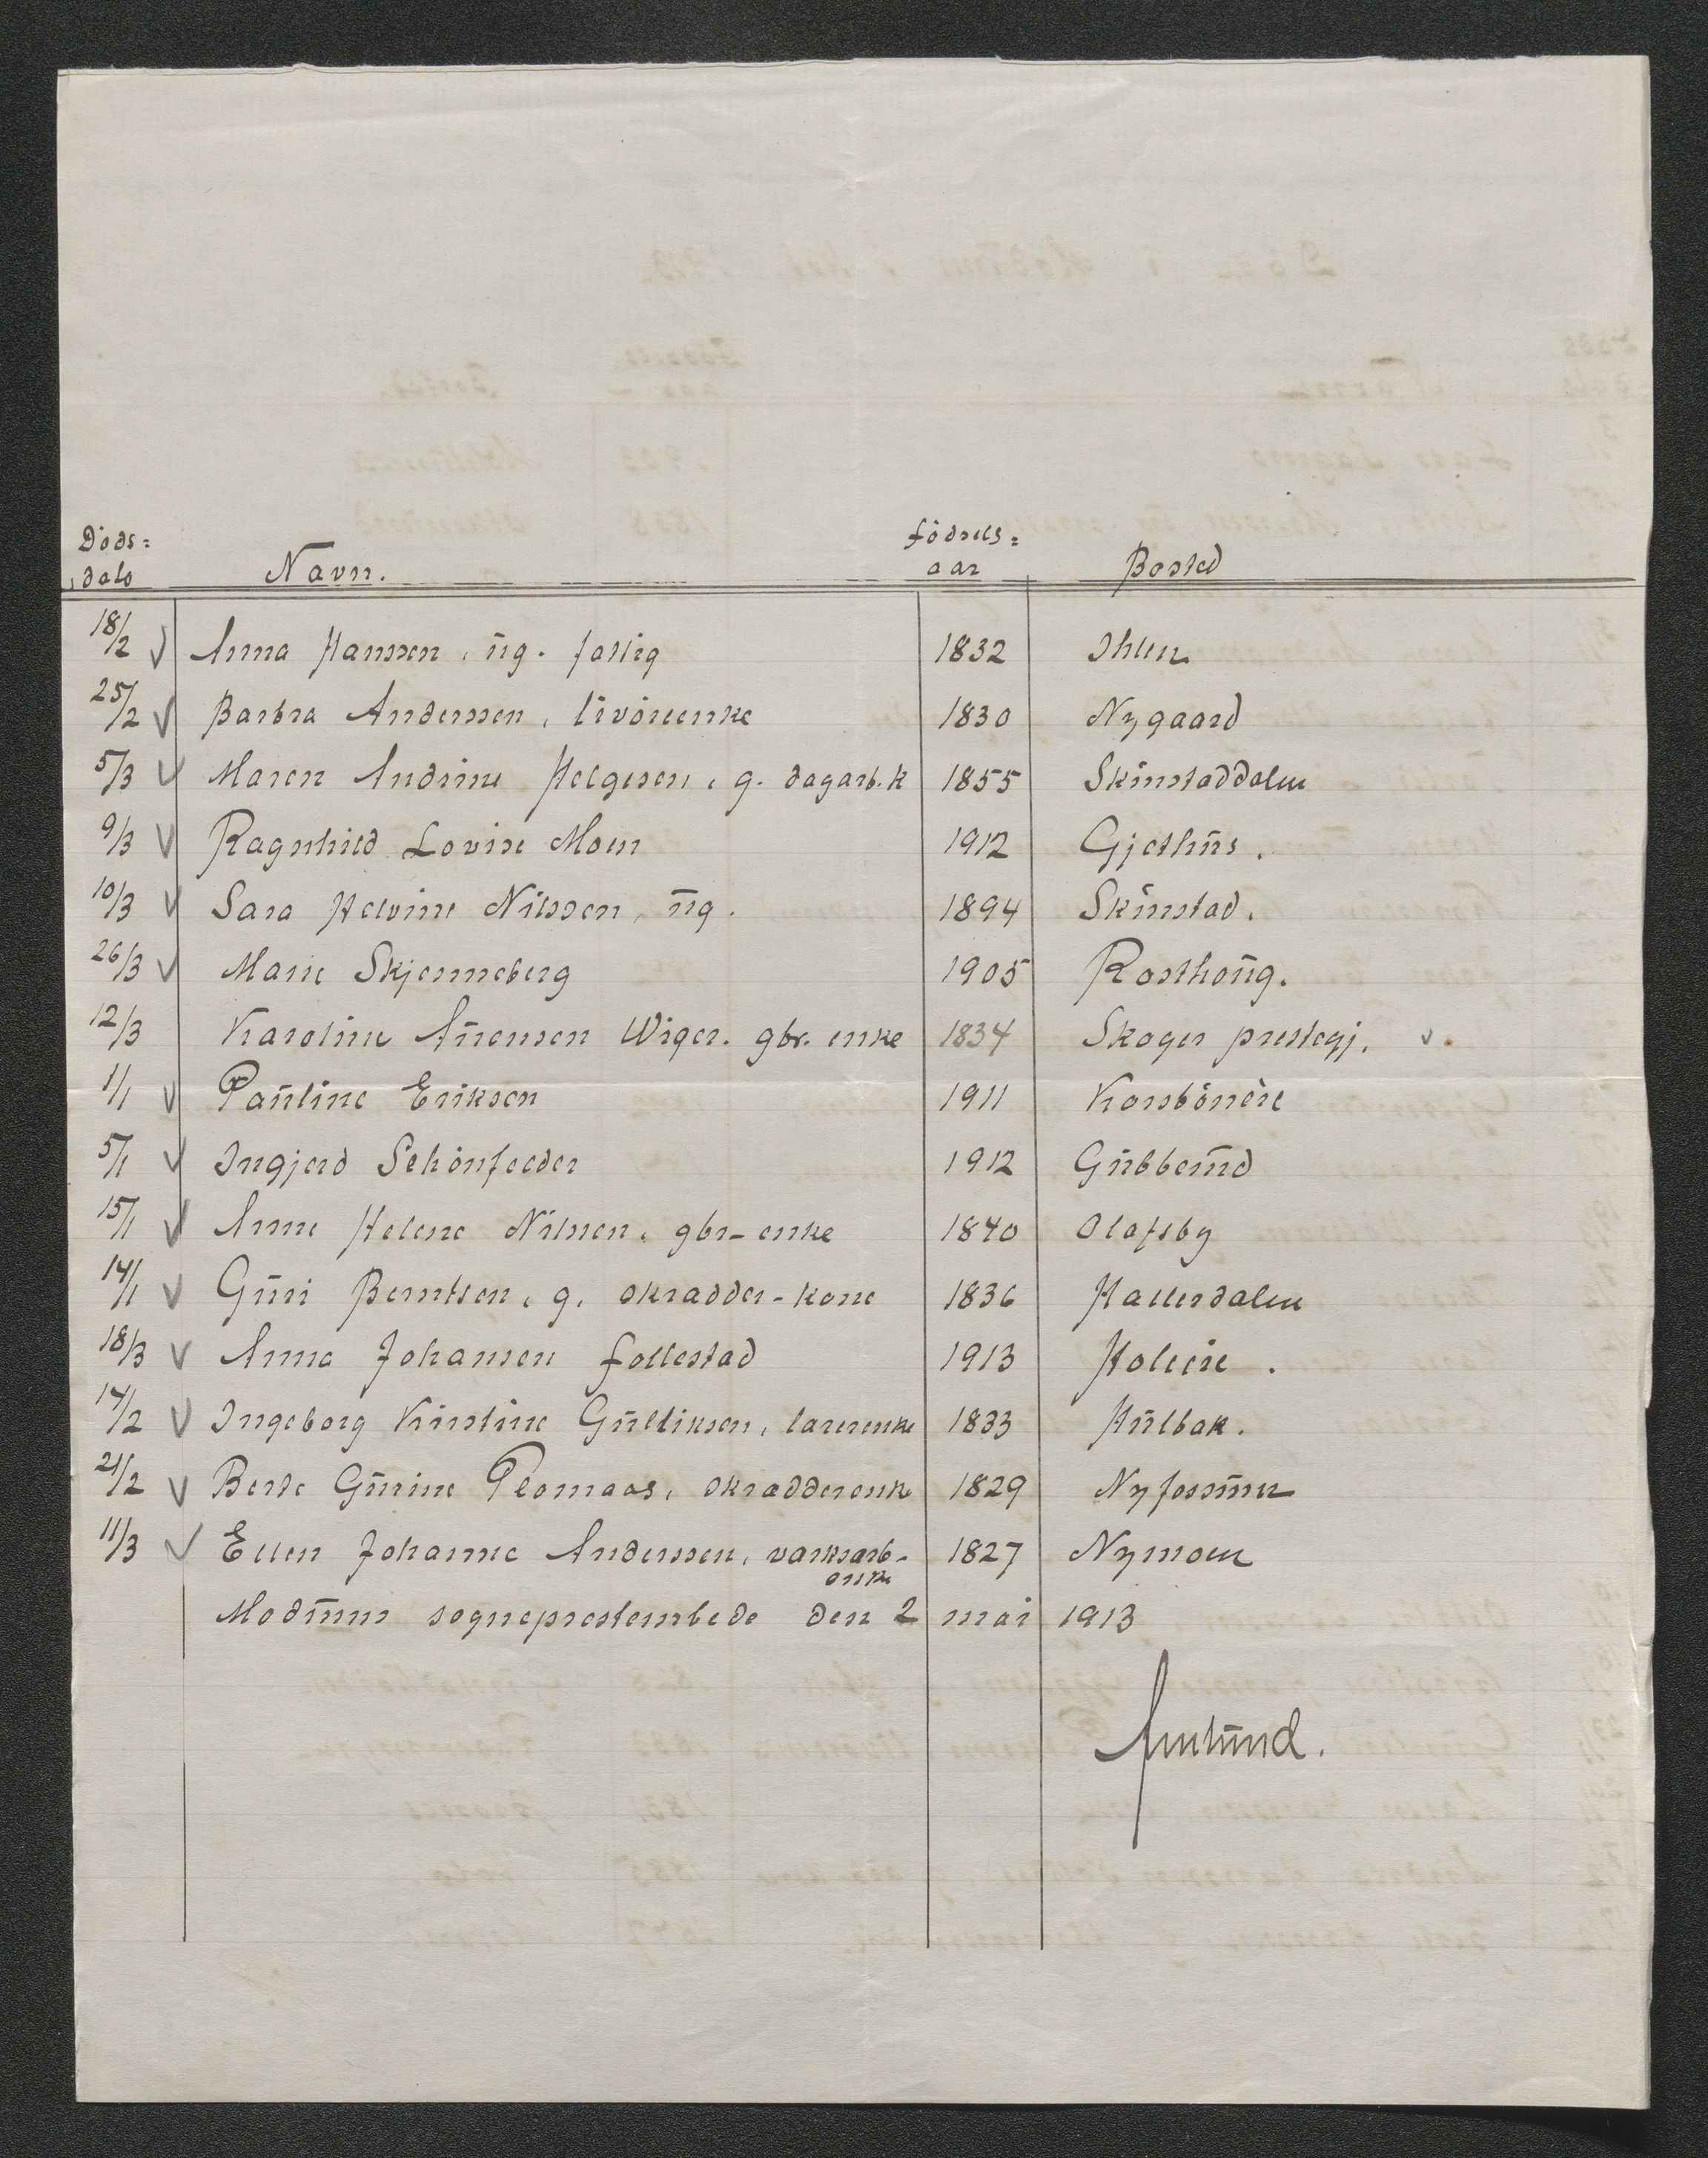 Döds= Födsels=
dato Navn. aar Bosted
18/2 Anna Hanssen, ug. fattig 1832 Ihlen
25/2 Barbra Anderssen, livöreenke 1830 Nygaard
5/3 Maren Andrine Helgesen, g. dagarb.k 1855 Skinstaddalen
9/3 Ragnhild Lovise Moen 1912 Gjethus.
10/3 Sara Helvine Nilssen, ug. 1894 Skinstad.
26/3 Marie Skjenneberg 1905 Rosthoug.
12/3 Karoline Auensen Wiger. gbr. enke 1834 Skoger prestegj. v.
1/1 Pauline Eriksen 1911 Korsböneie
5/1 Ingjerd Schönfelder 1912 Gubberud
15/1 Anne Helene Nilsen, gbr-enke 1840 Olafsby
14/1 Guri Berntsen, g. skradder-kone 1836 Hallerdalen
18/3 Anna Johansen Follestad 1913 Holeie.
14/2 Ingeborg Kirstine Gulliksen, larerenke 1833 Hulbak.
21/2 Berte Gurine Plomaas, skradderenke 1829 Nyfossum
11/3 Ellen Johanne Anderssen, varksarb- 1827 Nymoen
enke
Modums sogneprestembede den 2 mai 1913